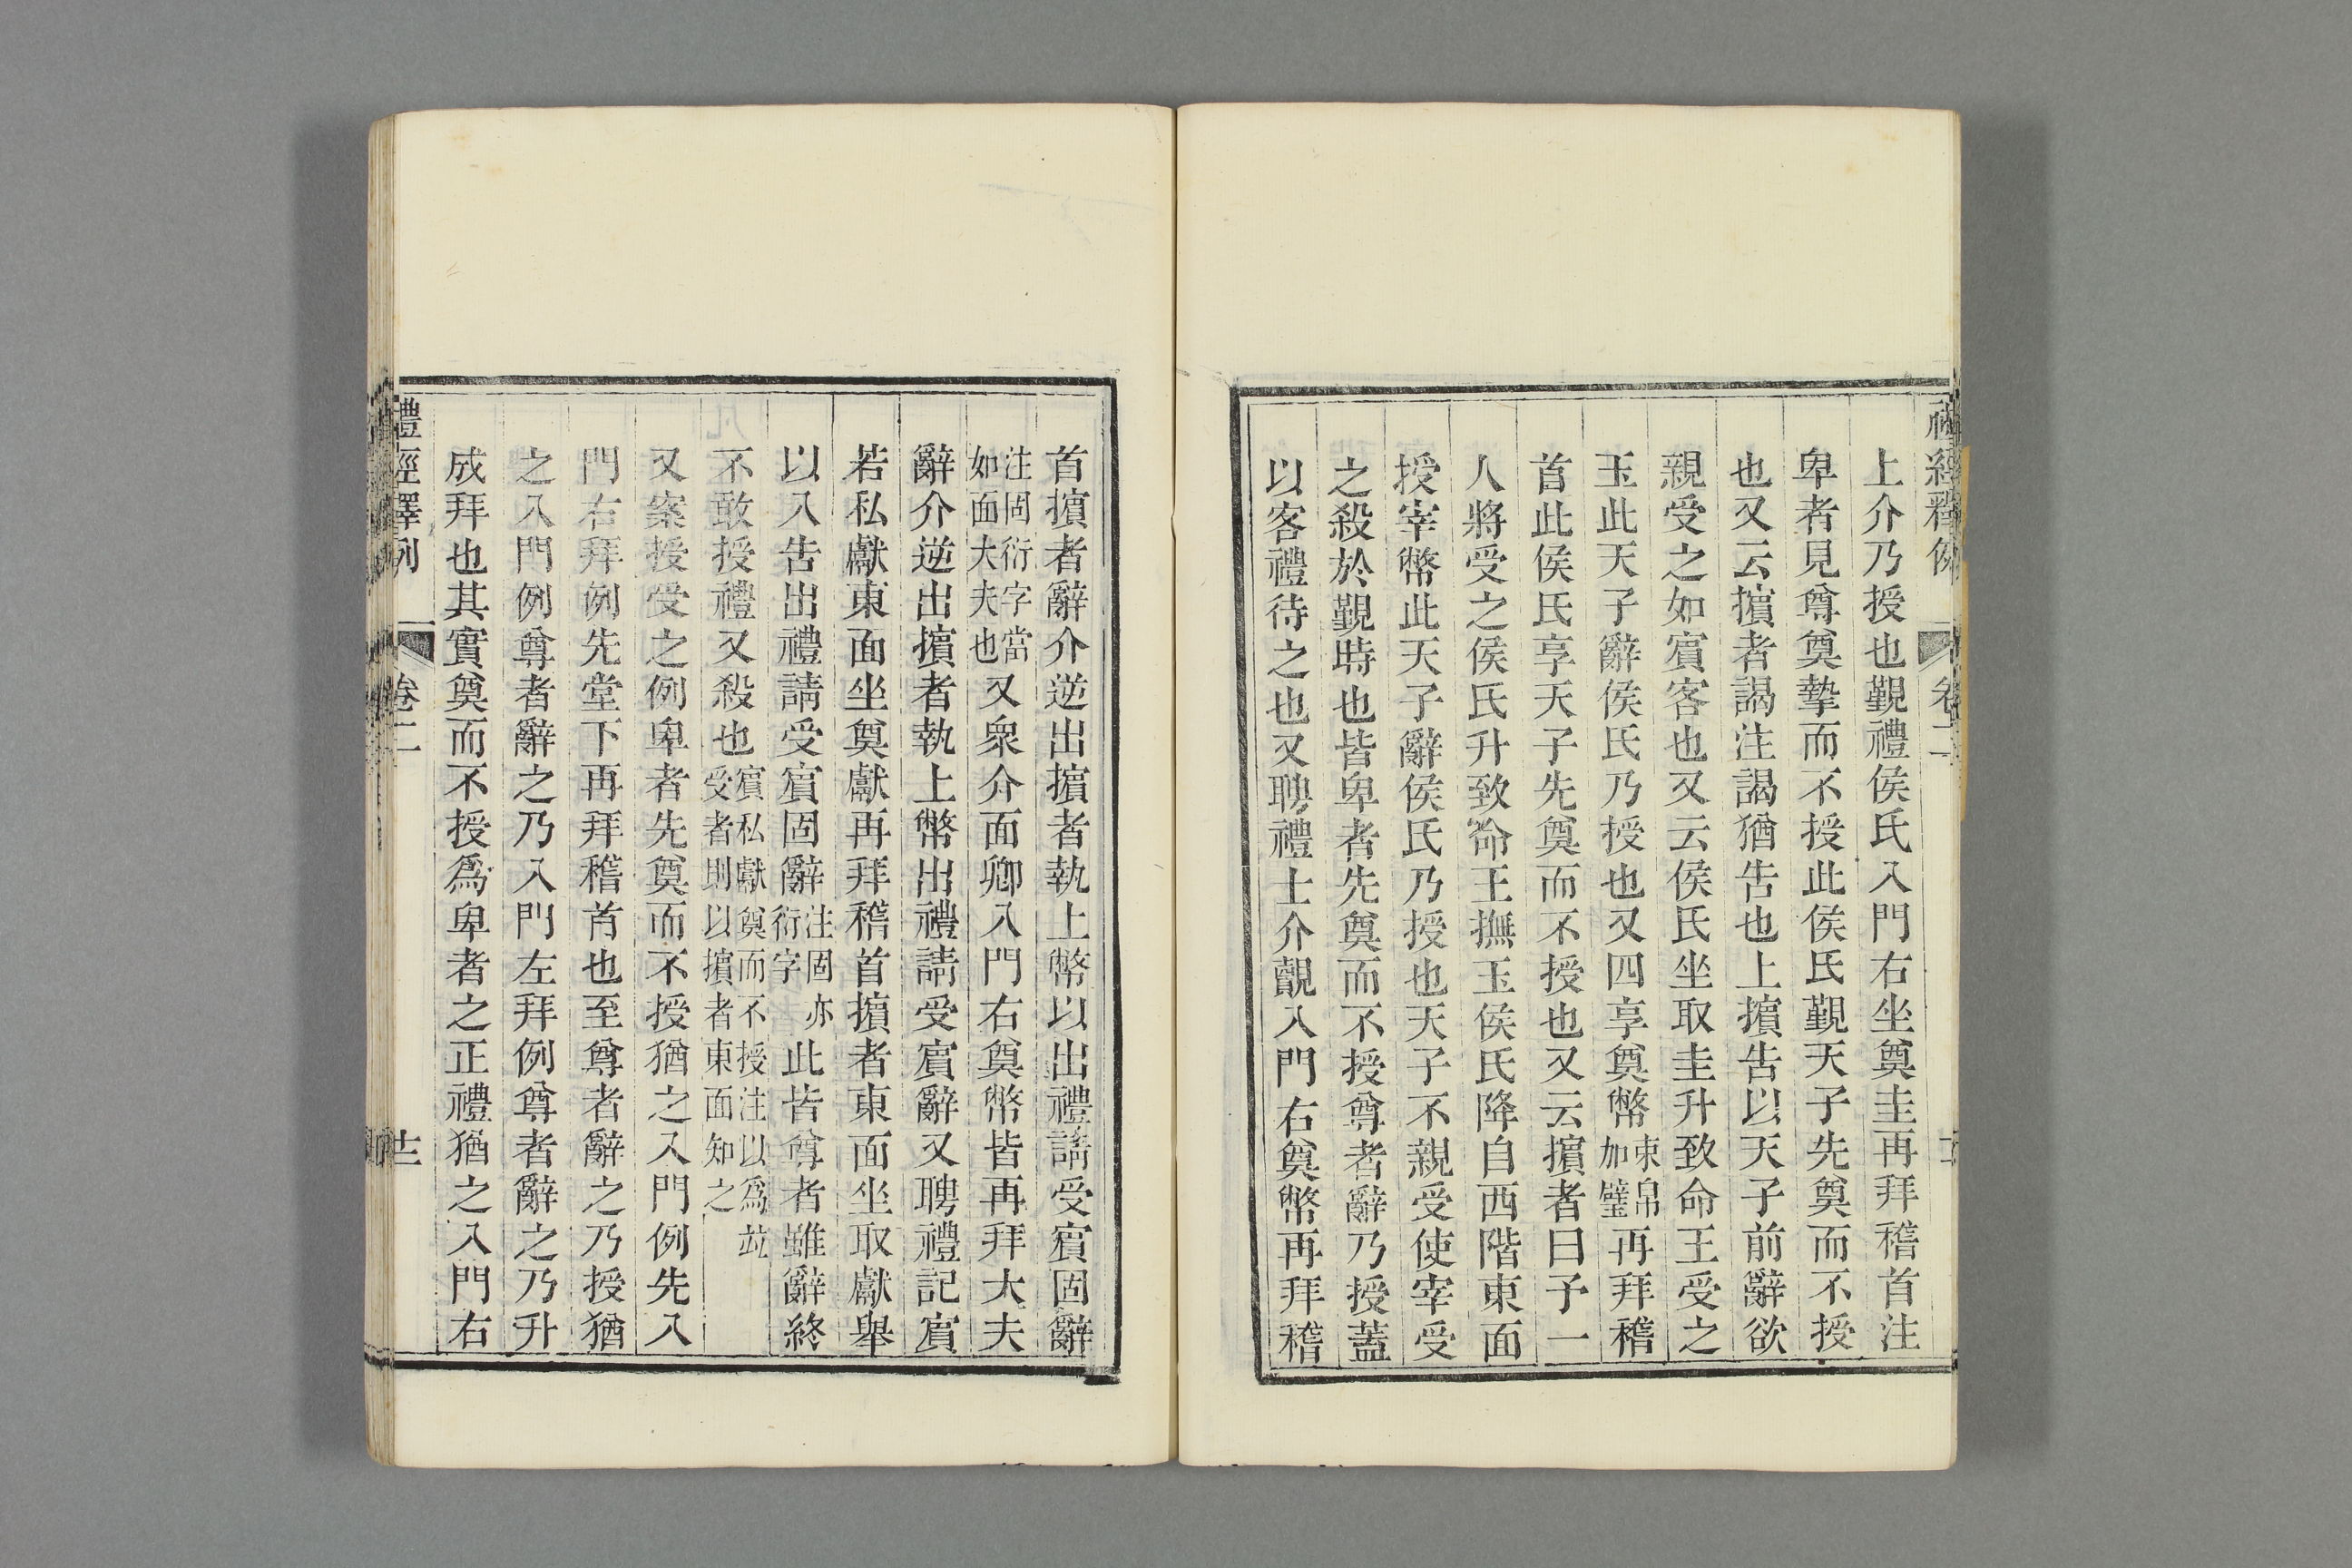 上介乃授也覲禮侯氏入門右坐奠圭再拜稽首注
卑者見尊奠摯而不授此侯氏覲天子先奠而不授
也又云擯者謁注謁猶告也上擯告以天子前辭欲
親受之如賔客也又云侯氏坐取圭升致命王受之
玉此天子辭侯氏乃授也又四享奠幣束帛加璧再拜稽
首此侯氏享天子先奠而不授也又云擯者曰予一
人將受之侯氏升致命王撫玉侯氏降自西階東面
授宰幣此天子辭侯氏乃授也天子不親受使宰受
之殺於覲時也皆卑者先奠而不授尊者辭乃授蓋
以客禮待之也又聘禮士介觀入門右奠幣再拜稽
首擯者辭介逆出擯者執上幣以出禮請受賔固辭
注固衍字當如面大夫也又衆介面卿入門右奠幣皆再拜大夫
辭介逆出擯者執上幣出禮請受賔辭又聘禮記賔
若私獻東面坐奠獻再拜稽首擯者東面坐取獻舉
以入告出禮請受賔固辭注固亦衍字此皆尊者雖辭終
不敢授禮又殺也賔私獻奠而不授注以爲並受者則以擯者東面知之
又案授受之例卑者先奠而不授猶之入門例先入
門右拜例先堂下再拜稽首也至尊者辭之乃授猶
之入門例尊者辭之乃入門左拜例尊者辭之乃升
成拜也其實奠而不授爲卑者之正禮猶之入門右
禮經釋例 卷二